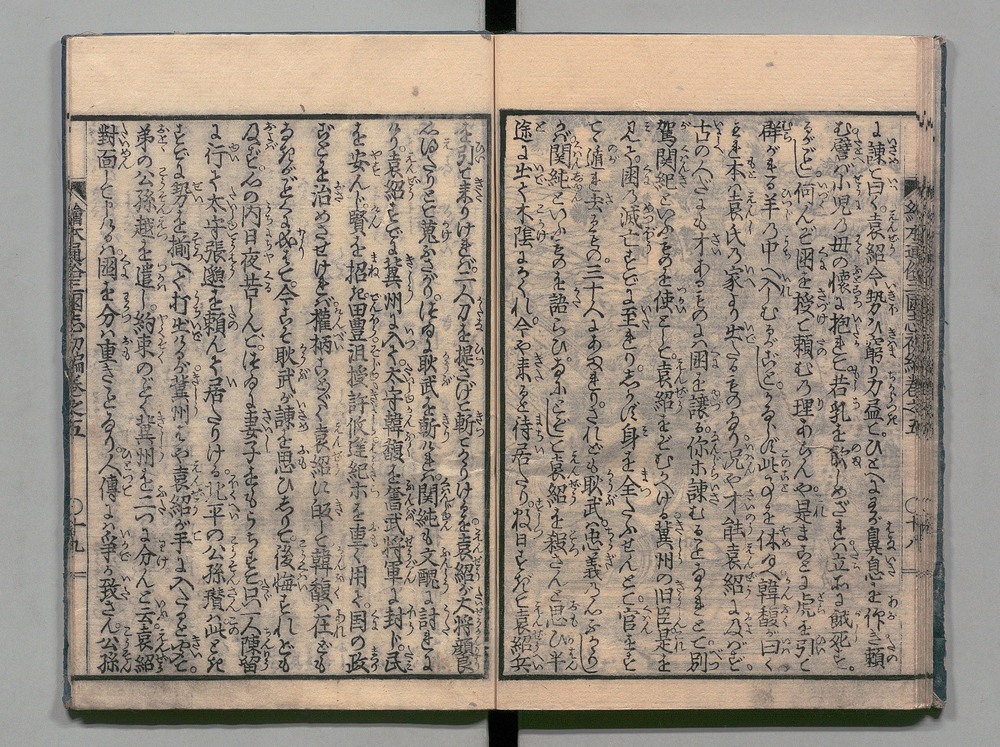 に諫て曰く袁紹今勢ひ窮り力盡てひとへに我が鼻息を作ぎ頼
む譬ば小児の毋の懷に抱れて若乳を飲しめざれば立ふに餓死す
るがごとし何んぞ国を授て頼むの理あらんや是まことに虎を引て
群がる羊の中へ入しむるがごとくなるべし此事を休玉へ韓馥が曰く
我本袁氏の家より出たるものなり況や才能袁紹に及ばず
古の人だにも才あるものには国を譲る你ホ諫むることなかれとて別
駕関純といふものを使として袁紹をむかへける冀州の旧臣是を
見て国の滅亡すでに至れりしかじ身を全たふせんにはとて官をすて
て逍れ去るもの三十人にあまれりされども耿武は忠義ふかかりし
が関純といふものを語らひひそかに袁紹を殺さんと思ひ半
途に出て木陰にかくれ今や来ると待居たり数日すぎて袁紹兵
繪本通俗三國志初編巻之五
〇十八
を引て来りければ二人刀を提さげて斬てかかりけるを袁紹が大将顔良
馳ふさがりつひに耿武を斬ければ関純も文醜に討れに
けり袁紹すでに冀州に入て太守韓馥を奮武将軍に封じ民
を安んじ賢を招き田豊沮授許攸逢紀ホを重く用ひ国の政
ごとを治めさせければ權柄ことごとく袁紹に歸して韓馥は在ども
なきがごとくなりぬ今こそ耿武が諫を思ひしりて後悔すれども
及ばず心の内日夜苦しんでつひに妻子をもうちすて只一人陳留
に行て太守張邈を頼んで居たりける北平の公孫瓚は此とき
すでに勢を揃へて打出けるが冀州はや袁紹が手に入たると聞て
弟の公孫越を遣し約束のごとく冀州を二つに分んと云袁紹
對面して曰く国を分は重きことなり人傳には爭か致さん公孫
繪本通俗三國志初編巻之五
〇十九